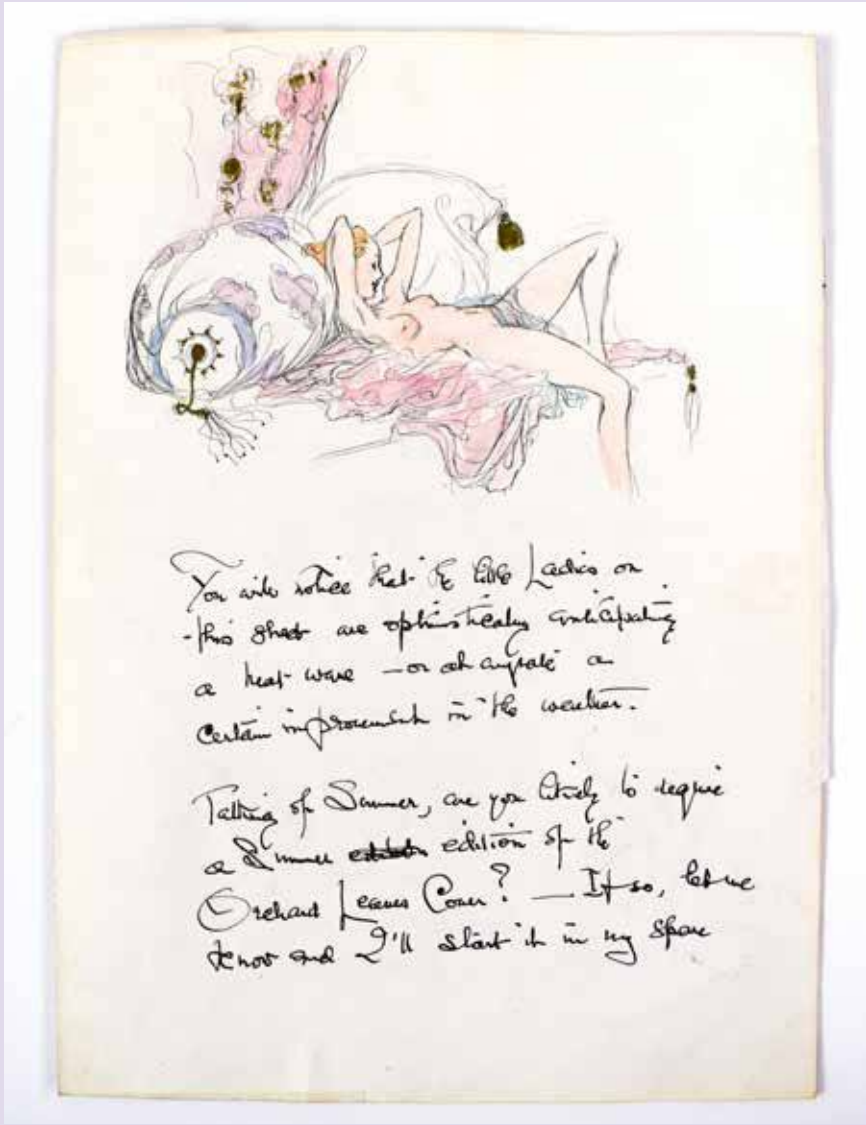 You will notice that the little Ladies on
this sheet are optimistically anticipating
a heat wave — or at anyrate a
certain improvement in the weather.
Talking of Summer, are you likely to require
a Summer edition of the
Orchard Leaves Cover? — If so, let me
know and I'll start it in my spare